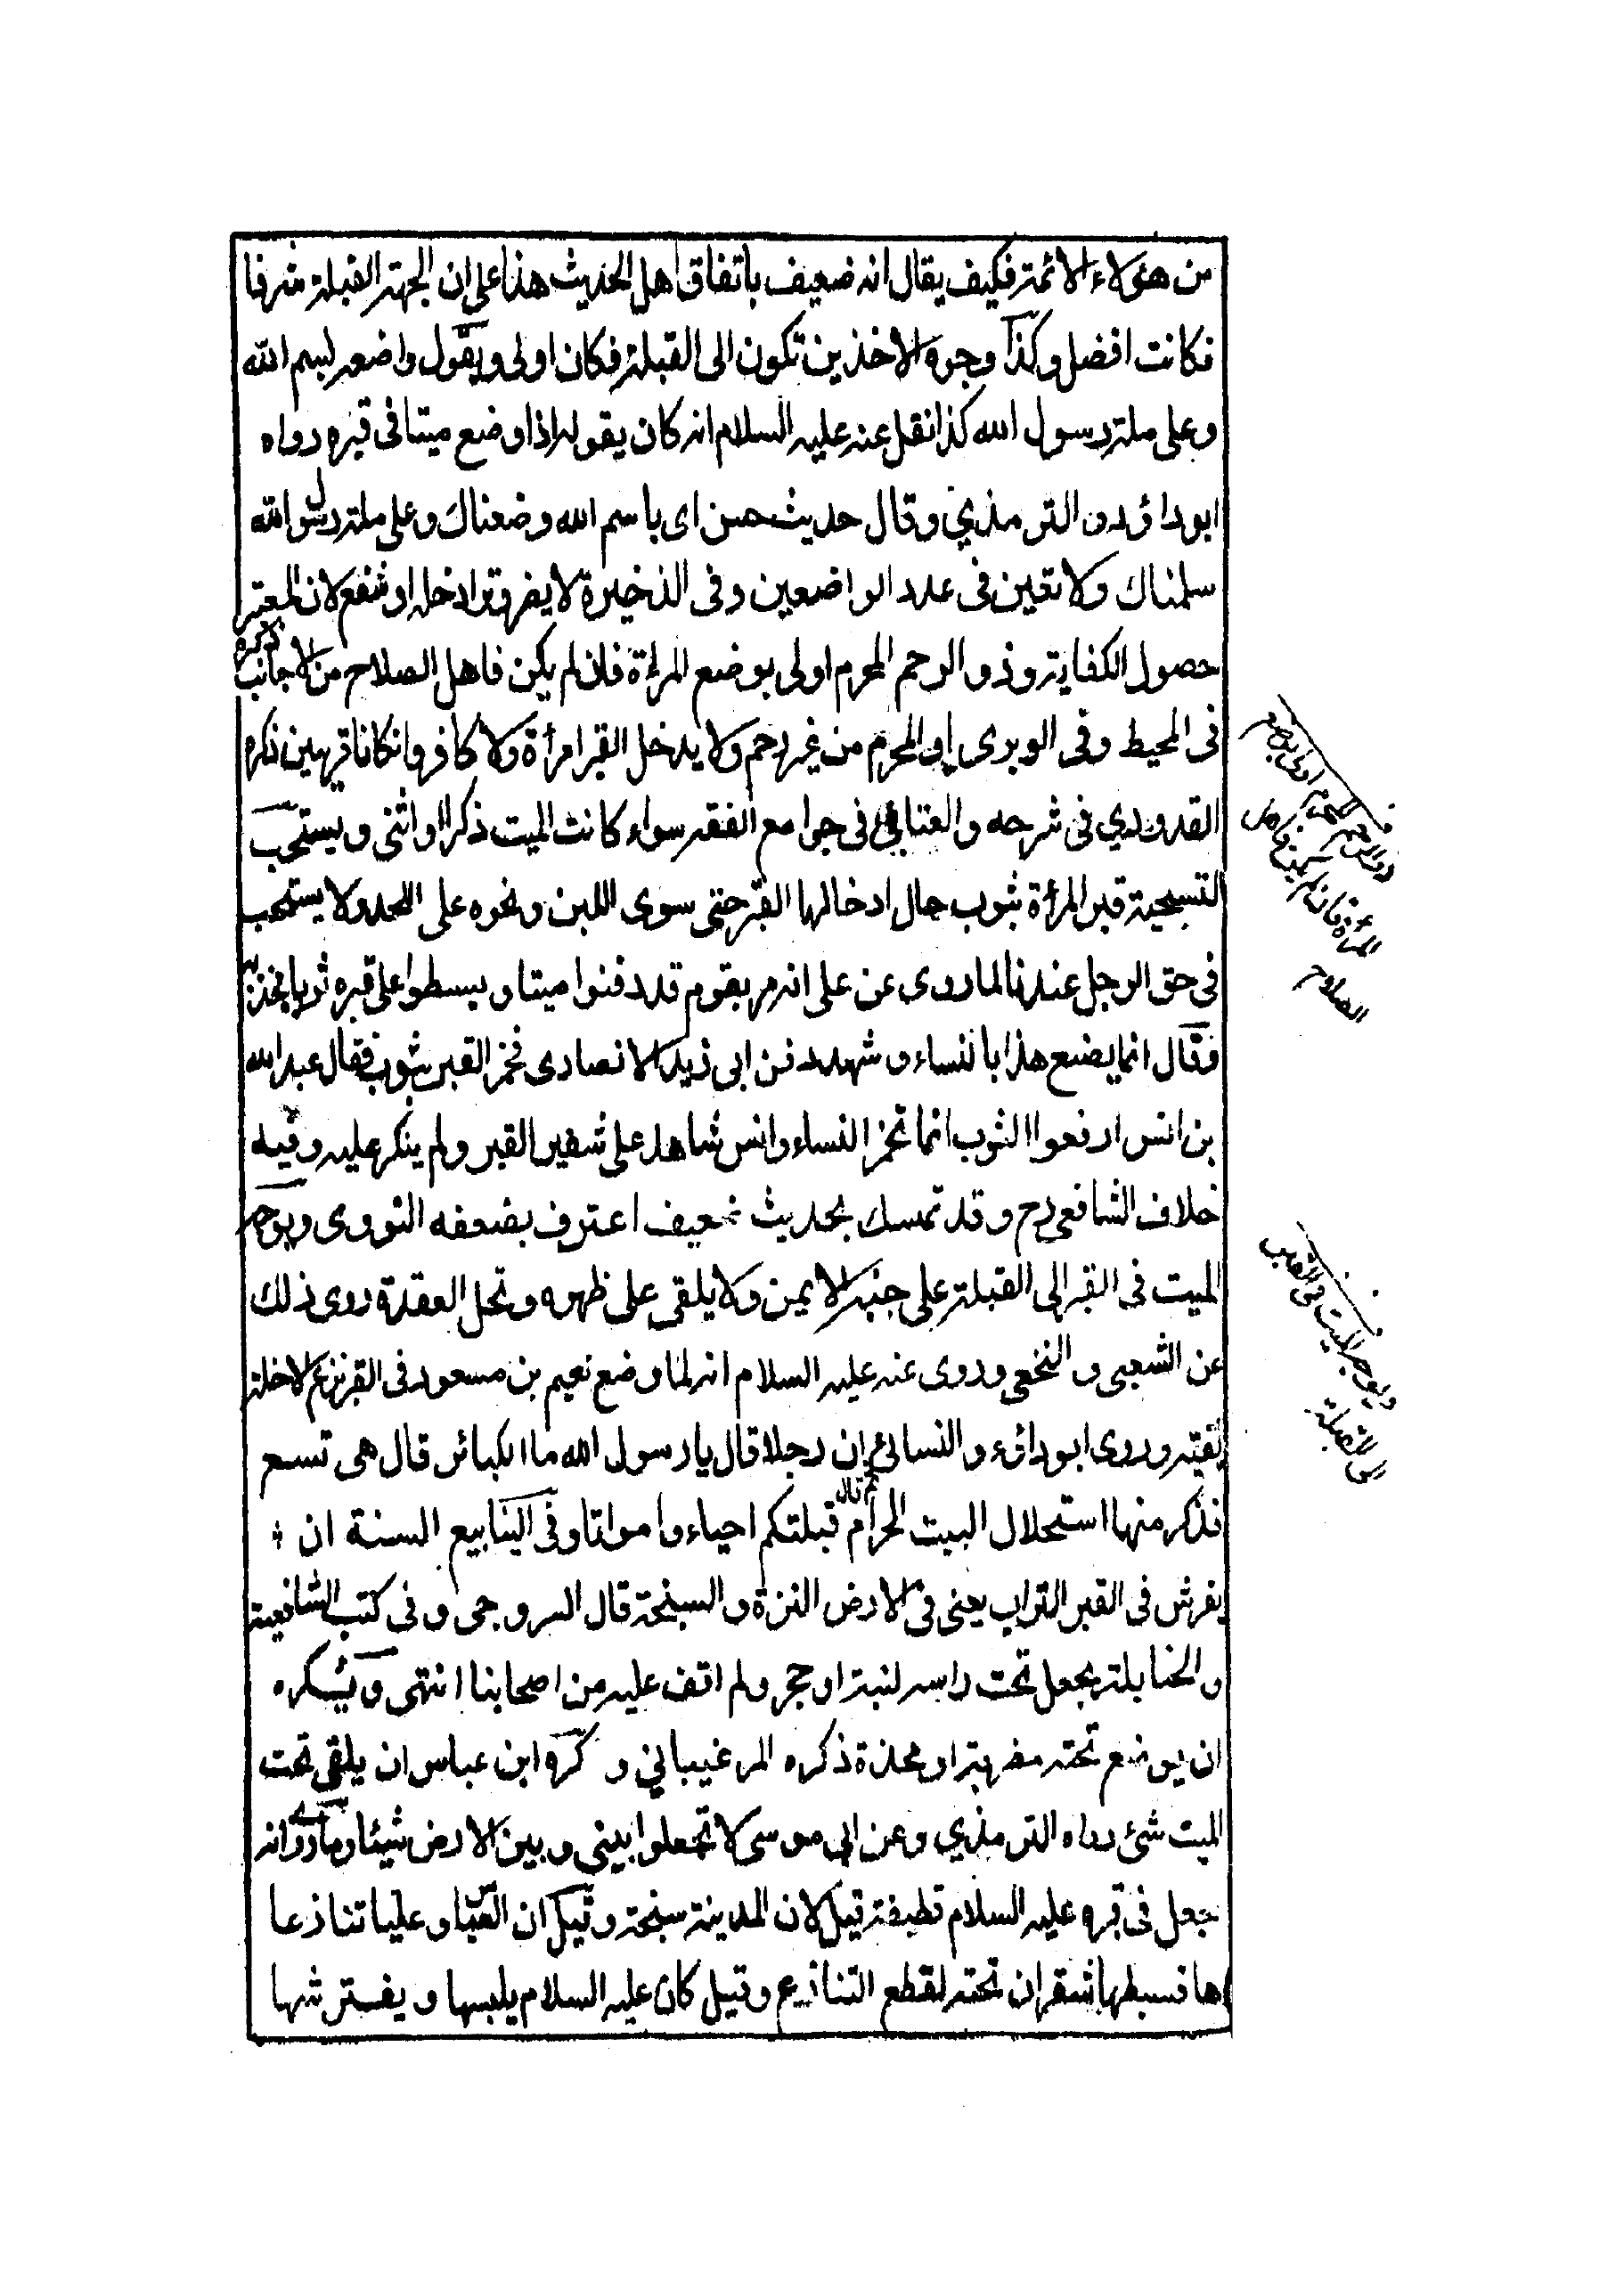 من هؤلاء الائمة فكيف يقال انه ضعيف باتفاق اهل الحديث هذا على ان الجهة القبلة شرفا
فكانت افضل وكذا وجوه الاخذين تكون الى القبلة فكان اولى ويقول واضعه لبسم الله
وعلى ملة رسول الله كذا نقل عنه عليه السلام انه كان يقوله اذا وضع ميتا فى قبره رواه
ابو داؤد و الترمذي وقال حديث حسن اى باسم الله وضعناك وعلى ملة رسول الله
سلمناك ولا تعين فى عدد الواضعين وفى الذخيرة لا يضر وتر ادخله او شفع لان المعتبر
حصول الكفاية وذو الرحم المحرم اولى بوضع المرأة فان لم يكن فاهل الصلاح من الاجانب ذكره
فى المحيط وفى الوبرى المحرم من غير رحم ولا يدخل القبر امرأة ولا كافر وانكانا قريبين ذكره
القدوري فى شرحه والعتابي فى جوامع الفقه سواء كانت الميت ذكرا او انثى ويستحب
التسجية قبر المرأة بثوب حال ادخالها القبر حتى سوى اللبن ونحوه على اللحد ولا يستحب
فى حق الرجل عندنا لما روى عن على انه مر بقوم قد دفنوا ميتا وبسطوا على قبره ثوبا فجذبه
وقال انما يضع هذا بالنساء و شهد دفن ابى زيد الانصارى فخمر القبر بثوب فقال عبد الله
بن انس ارفعوا الثوب انما تخمر النساء وانس شاهد على شفير القبر ولم ينكر عليه وفيه
خلاف الشافعى رح وقد تمسك بحديث ضعيف اعترف بضعفه النووى ويوجه
الميت فى القبر الى القبلة على جنبه الايمن ولا يلقى على ظهره وتحل العقدة روى ذلك
عن الشعبى و النخعى وروى عنه عليه السلام انه لما وضع نعيم بن مسعود فى القبر نزع الاخلة
بفيه وروى ابو داؤد والنسائى ان رجلا قال يا رسول الله ما الكبائر قال هى تسع
فذكر منها استحلال البيت الحرام ثم قال قبلتكم احياء وامواتا وفى الينابيع السنة ان
يفرش فى القبر التراب يعنى فى الارض النزة و السبخة قال السروجى وفى كتب الشافعية
والحنابلة يجعل تحت راسه لبنة او حجر ولم اقف عليه من اصحابنا انتهى ويكره
ان يوضع تحته مضربة او مخدة ذكره المرغيناني و كره ابن عباس ان يلقى تحت
الميت شئ رواه الترمذي وعن ابى موسى لا تجعلوا بيني وبين الارض شيئا وما روى انه
جعل فى قبره عليه السلام قطيفة قيل لان المدينة سبخة وقيل ان العباس وعليا تنازعا
ها فبسطها شقران تحته لقطع التنازع وقيل كان عليه السلام يلبسها ويفترشها
وذو الرحم المحرم اولى بوضع
المرأة فان لم يكن فاهل
الصلاح
ويوجه الميت فى القبر
الى القبلة